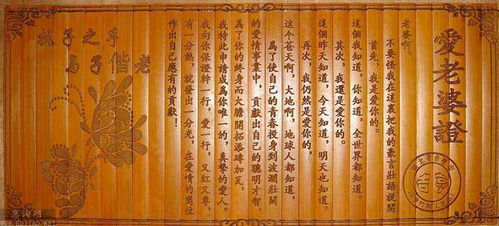 愛老婆證
老婆啊。
不要怪我在這裏把我的豪言壯語說開
首先，我是愛你的。
這個我知道，你知道，全世界都知道。
其次，我還是愛你的。
這個昨天知道，今天知道，明天也知道。
再次，我仍然是愛你的。
這个蒼天啊，大地啊，地球人都知道，
為了使自己的青春投身到波瀾壯闊
的愛情事業中，貢獻出自己的聰明才智。
為了你的終身而大膽開拓添磚加瓦，
我特此申請成為你唯一的，真摯的愛人。
我向你保證幹一行，愛一行，又紅又專，
有一分熱，就發出一分光，在愛情的崗位
作出自己應有的貢獻！
執子之手
与子偕老